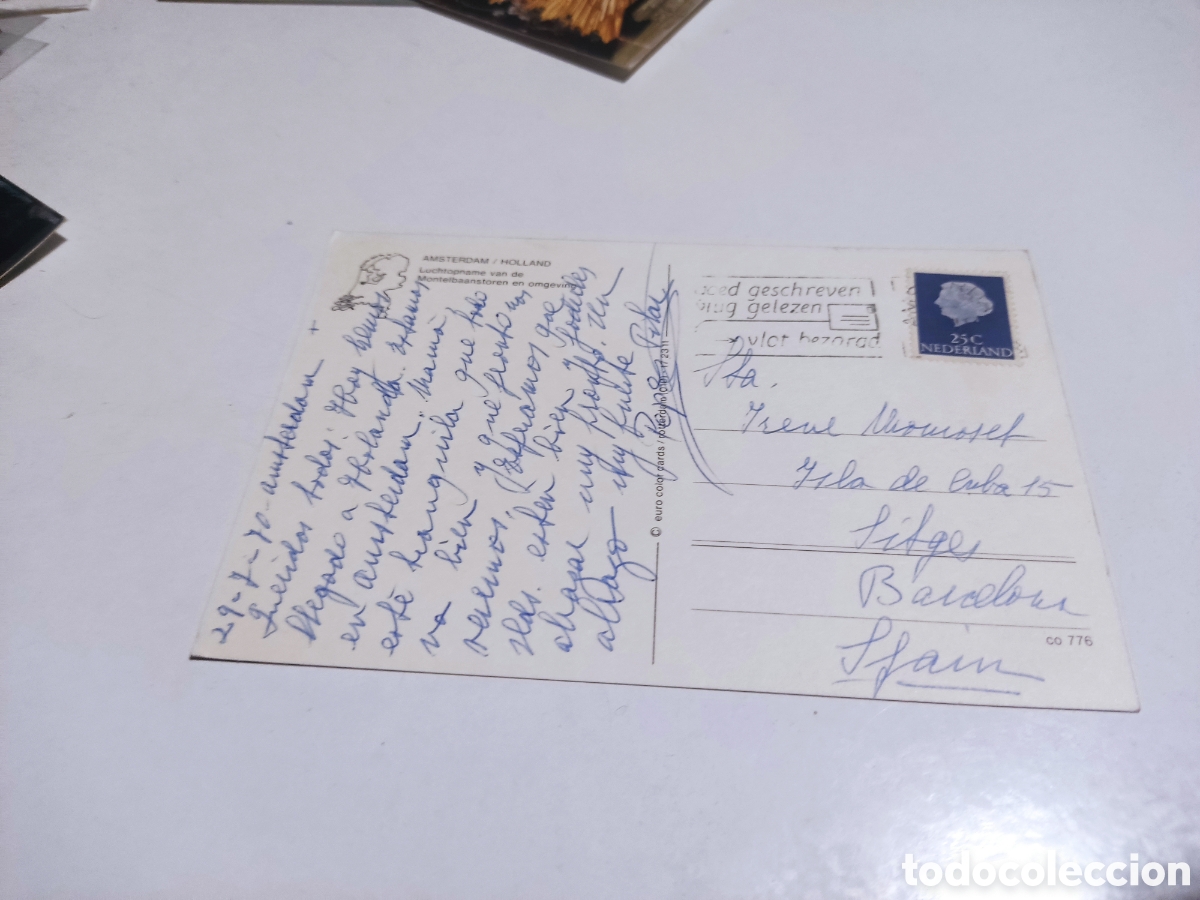 AMSTERDAM / HOLLAND
Luchtopname van de
Montelbaanstoren en omgeving
29-7-70 - Amsterdam
Queridos todos: Hoy hemos
llegado a Holanda. estamos
en Amsterdam. Mamá
esté tranquila que todo
va bien y que pronto nos
veremos. Esperamos que
estén bien y
abrazar muy fuerte. Un
abrazo muy fuerte
Pepe Pilar
© euro color cards / rotterdam
goed geschreven
vlug gelezen
vlot bezorgd
25 C
NEDERLAND
Sta.
Irene
Isla de Cuba 15
Sitges
Barcelona
Spain
co 776
todocoleccion